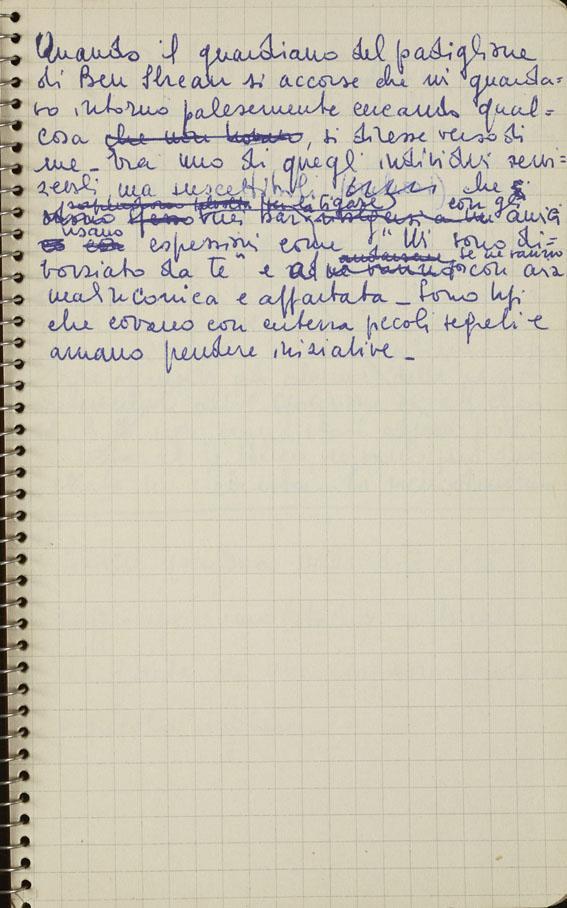 Quando il guardiano del padiglione
di Ben Shean si accorse che mi guarda=
vo intorno palesemente cercando qual=
cosa che non trovavo, si diresse verso di
me – Era uno di quegli individui servi=
zievoli ma suscettibili che
per litigare con gli
nei bar amici
usano
espessioni come "Mi sono di=
andarsene se ne vanno
vorziato da te" e con aria
malinconica e affaitata – Sono tipi
che covano con piccoli segreti e
amano prendere iniziative –